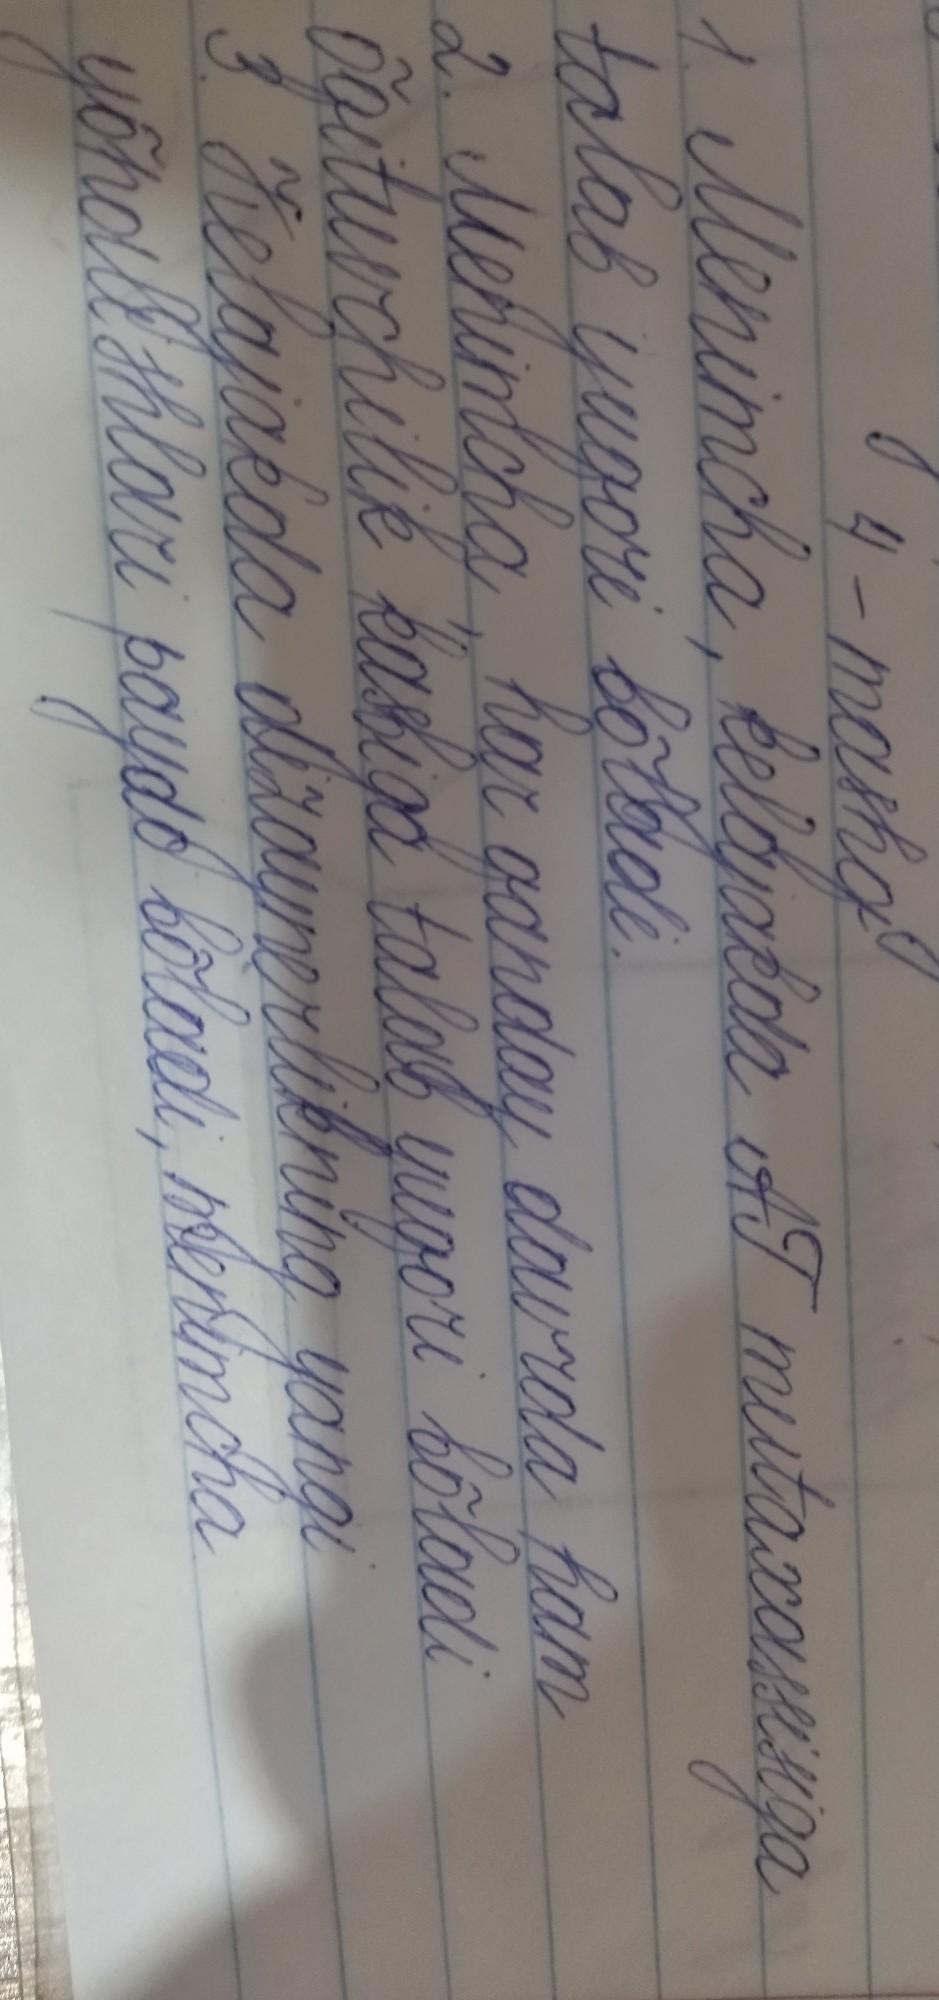 4-mashq
1. Menimcha, kelajakda AT mutaxassisiga
talab yuqori bõladi.
2. Menimcha, har qanday davrda ham
õqituvchilik kasbiga talab yuqori bõladi
3. Kelajakda dizaynerlikning yangi
yõnalishlari paydo bõladi, menimcha